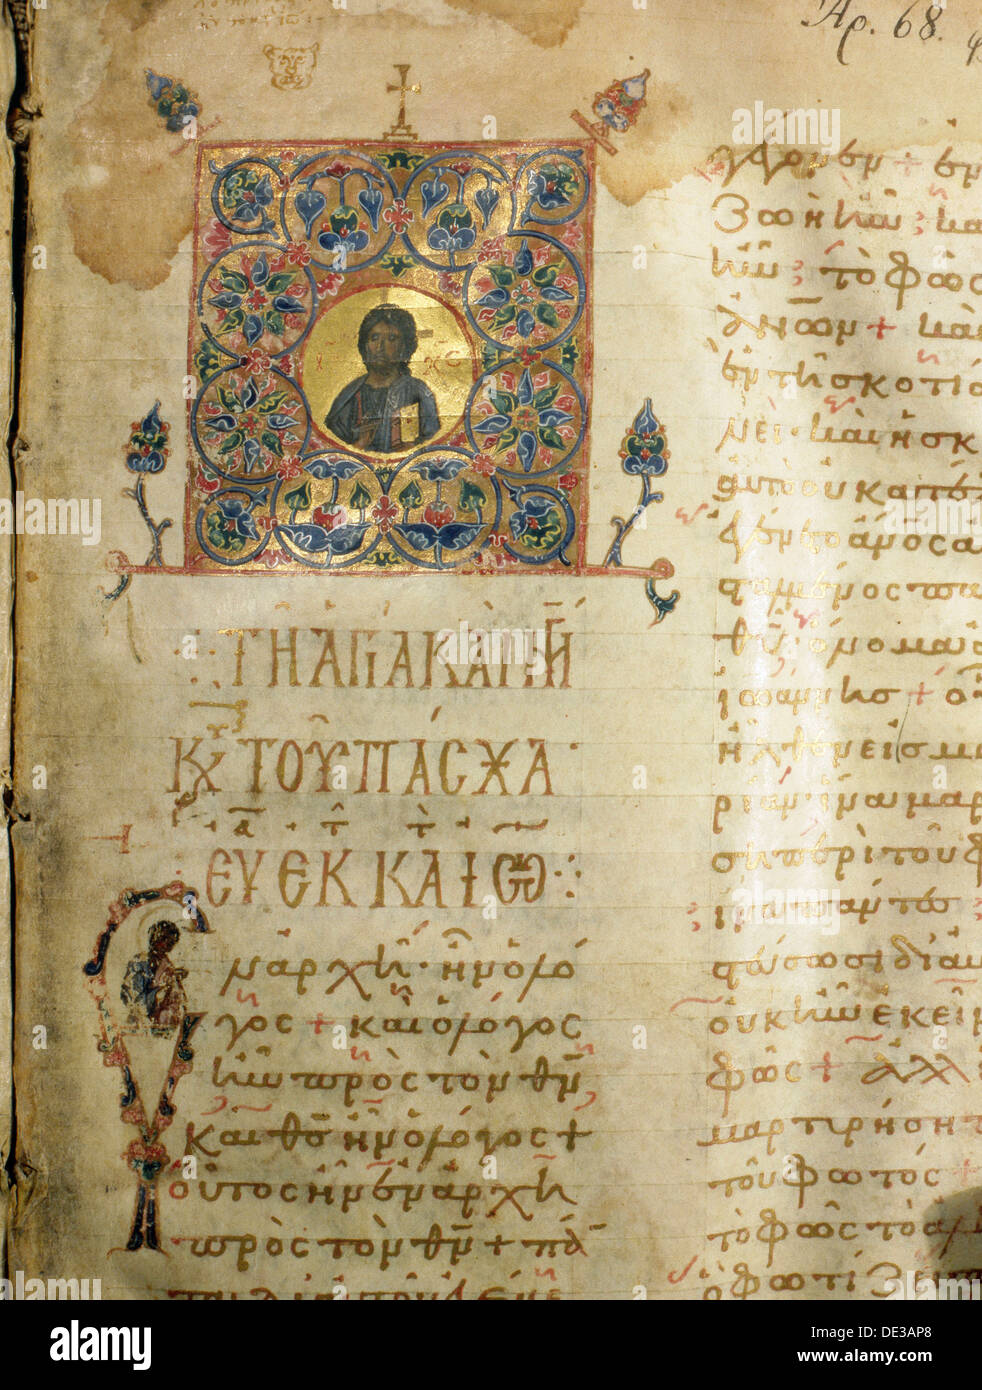 Ἀρ. 68.
ΙC ΧC
ΤΗ ΑΓΙΑ ΚΑΙ Μ
ΚΥ ΤΟΥ ΠΑΣΧΑ
ΕΥ ΕΚ Κ ΑΙ ΙΩ
Ἐν ἀρχῆ ἦν ὁ λό
γος + καὶ ὁ λόγος
ἦν πρὸς τὸν θν
καὶ θς ἦν ὁ λόγος +
οὗτος ἦν ἐν ἀρχῆ
πρὸς τὸν θν + πά
ζωὴ ἦν
ἦν τὸ φῶς
ἀνων + καὶ
ἐν τῆ σκοτί
νει καὶ ἡ σκ
αὐτὸ οὐ κατέλ
ἐγένετο ἀνος ἀ
σταλμένος πα
θυ ὄνομα αὐ
ἰωάννης +
ἦλθεν εἰς μα
ρίαν ἵνα μαρ
ση περὶ τοῦ φ
ἵνα πάντες
στεύσωσι δι αὐ
οὐκ ἦν ἐκεῖν
φῶς + ἀλλ
μαρτυρήση
τοῦ φωτός +
τὸ φῶς τὸ ἀλ
ὃ φωτίζει
alamy
Image ID: DE3AP8
www.alamy.com